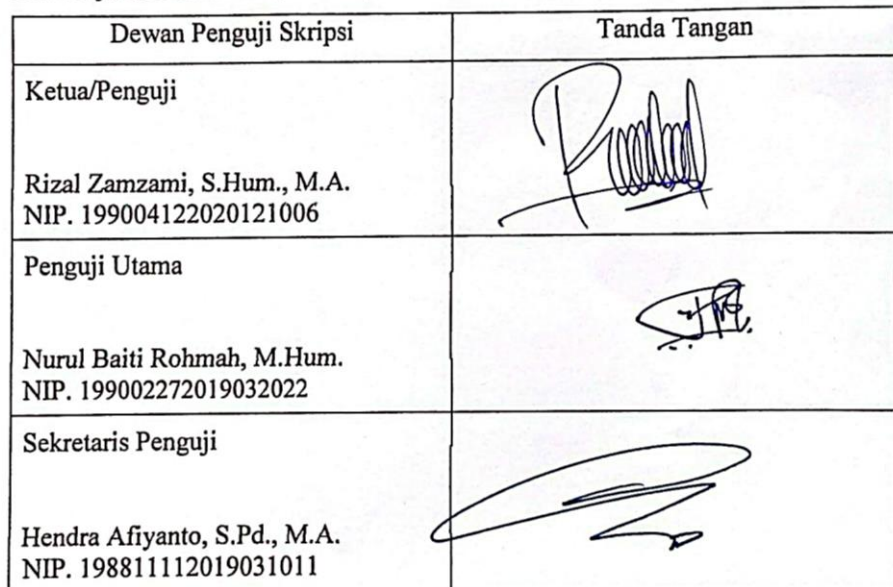 Dewan Penguji Skripsi
Tanda Tangan
Ketua/Penguji
Rizal Zamzami, S.Hum., M.A.
NIP. 199004122020121006
Penguji Utama
Nurul Baiti Rohmah, M.Hum.
NIP. 199002272019032022
Sekretaris Penguji
Hendra Afiyanto, S.Pd., M.A.
NIP. 198811112019031011